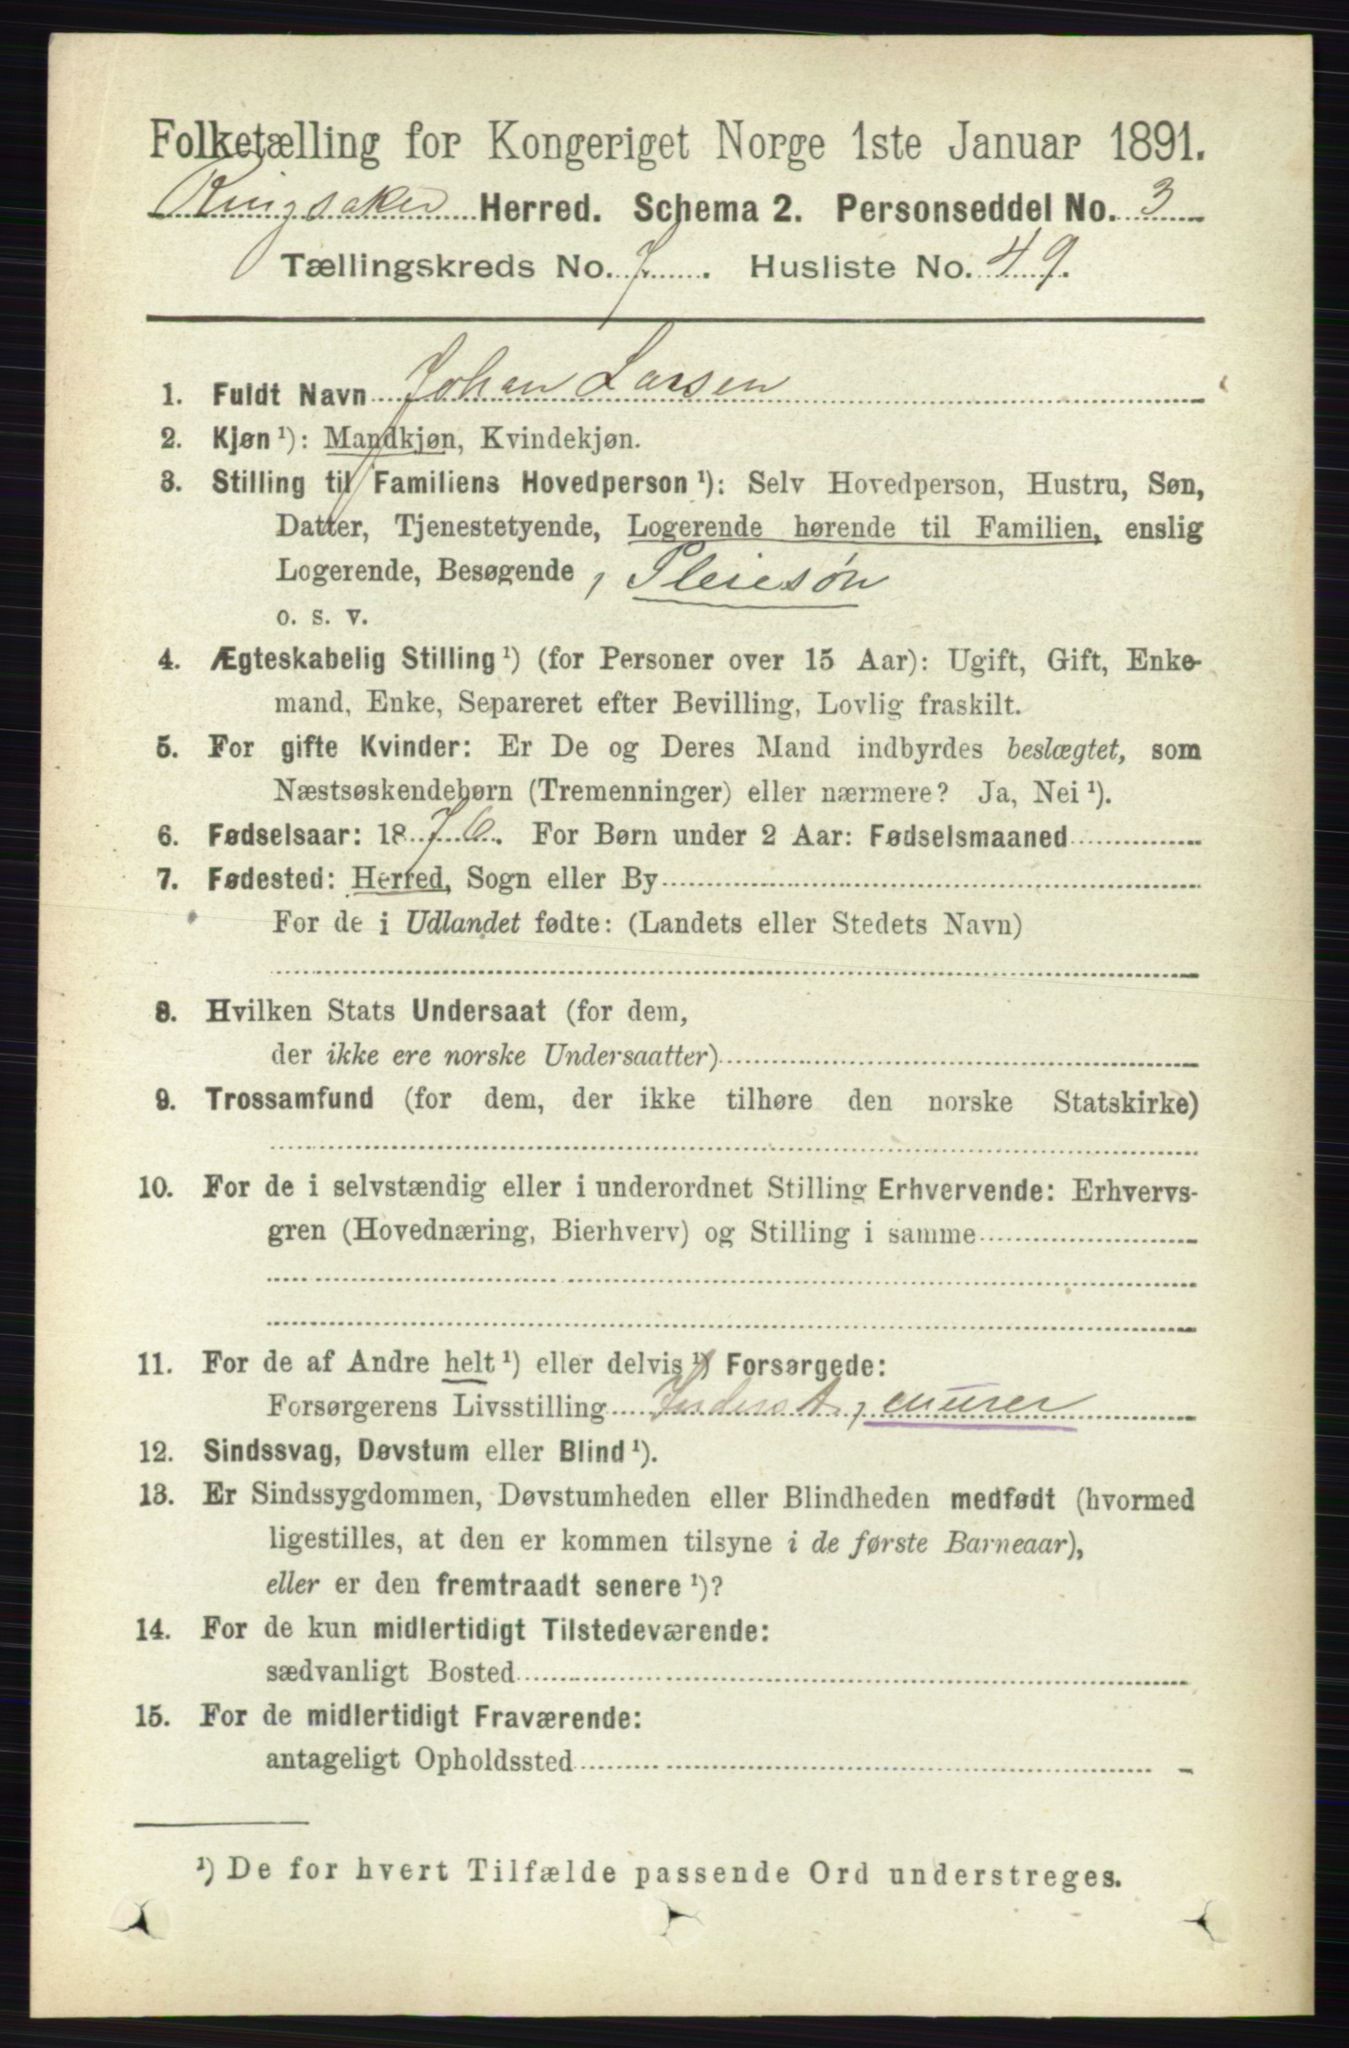 Folketælling for Kongeriget Norge 1ste Januar 1891.
Ringsaker Herred. Schema 2. Personseddel No. 3
Tællingskreds No. 7. Husliste No. 49.
1. Fuldt Navn Johan Larsen
2. Kjøn¹): Mandkjøn, Kvindekjøn.
3. Stilling til Familiens Hovedperson¹): Selv Hovedperson, Hustru, Søn,
Datter, Tjenestetyende, Logerende hørende til Familien, enslig
Logerende, Besøgende, Pleiesøn
o. s. v.
4. Ægteskabelig Stilling¹) (for Personer over 15 Aar): Ugift, Gift, Enke-
mand, Enke, Separeret efter Bevilling, Lovlig fraskilt.
5. For gifte Kvinder: Er De og Deres Mand indbyrdes beslægtet, som
Næstsøskendebørn (Tremenninger) eller nærmere? Ja, Nei¹).
6. Fødselsaar: 1876. For Børn under 2 Aar: Fødselsmaaned
7. Fødested: Herred, Sogn eller By
For de i Udlandet fødte: (Landets eller Stedets Navn)
8. Hvilken Stats Undersaat (for dem,
der ikke ere norske Undersaatter)
9. Trossamfund (for dem, der ikke tilhøre den norske Statskirke)
10. For de i selvstændig eller i underordnet Stilling Erhvervende: Erhvervs-
gren (Hovednæring, Bierhverv) og Stilling i samme
11. For de af Andre helt¹) eller delvis¹) Forsørgede:
Forsørgerens Livsstilling Inderst, murer
12. Sindssvag, Døvstum eller Blind¹).
13. Er Sindssygdommen, Døvstumheden eller Blindheden medfødt (hvormed
ligestilles, at den er kommen tilsyne i de første Barneaar),
eller er den fremtraadt senere¹)?
14. For de kun midlertidigt Tilstedeværende:
sædvanligt Bosted
15. For de midlertidigt Fraværende:
antageligt Opholdssted
¹) De for hvert Tilfælde passende Ord understreges.